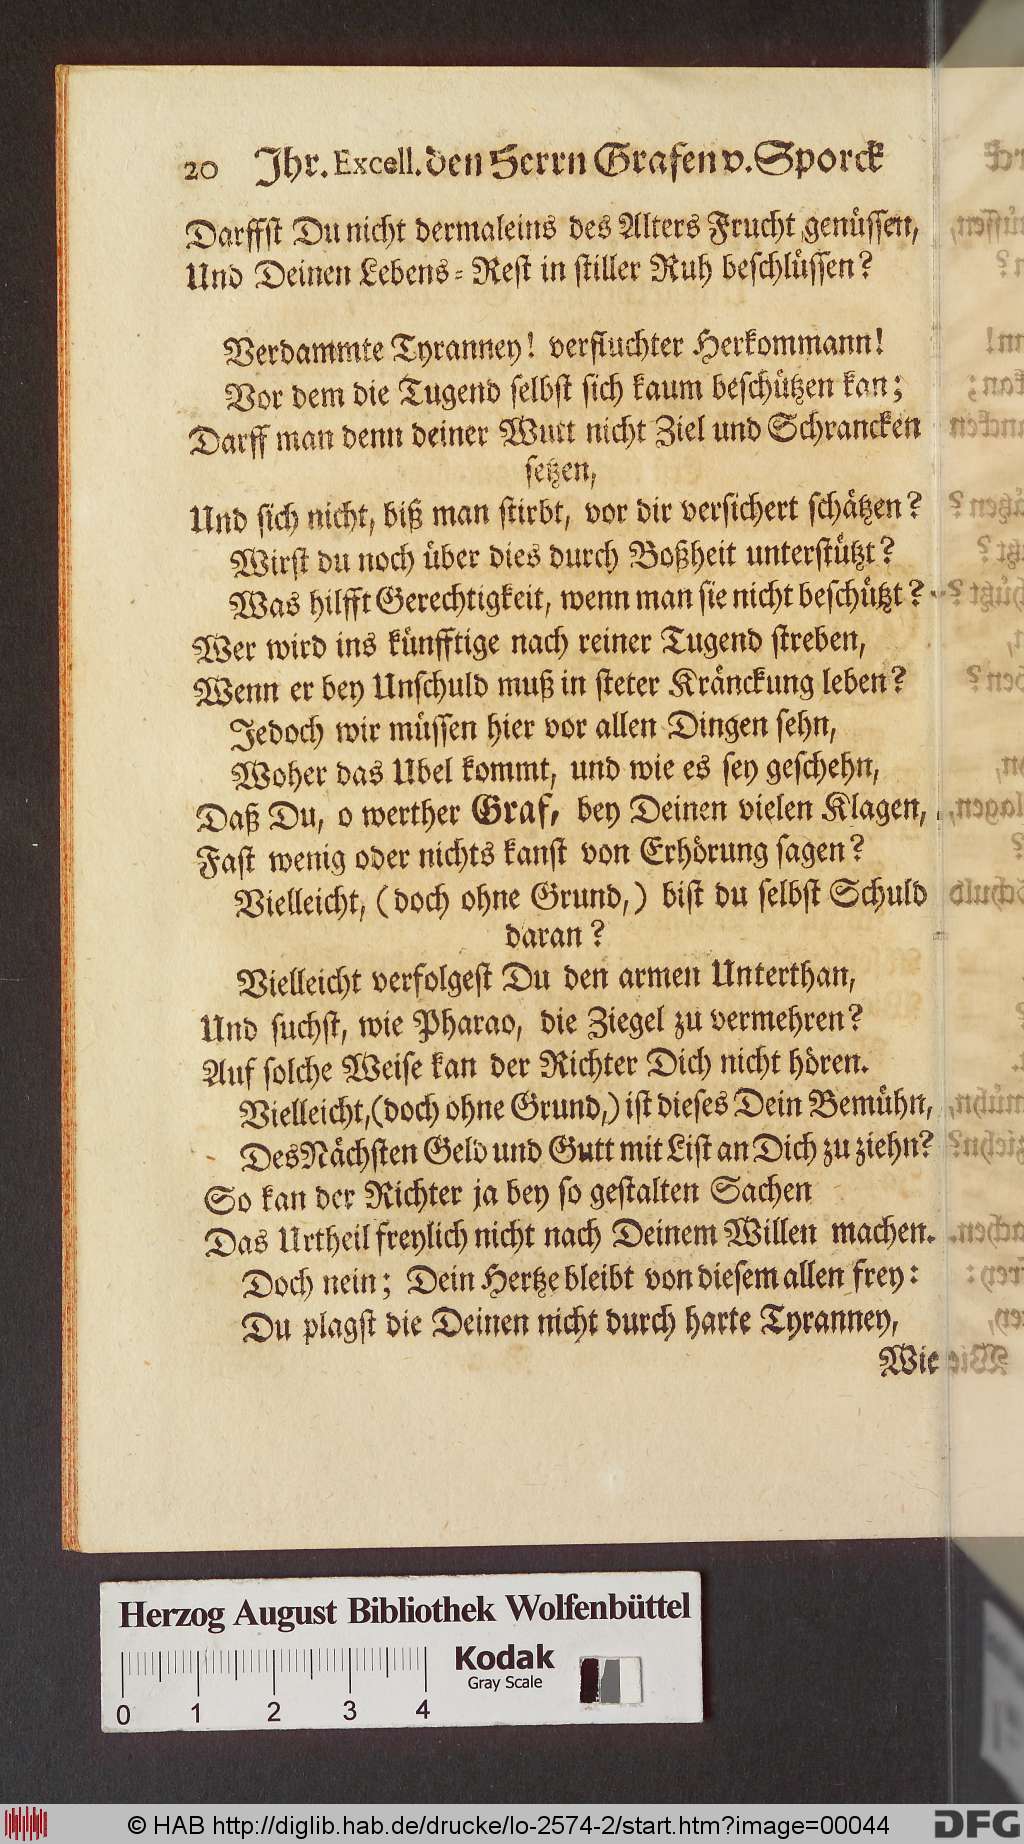 20 Ihr. Excell. den Herrn Grafen v. Sporck
Darffst Du nicht dermaleins des Alters Frucht genüssen,
Und Deinen Lebens-Rest in stiller Ruh beschlüssen?
Verdammte Tyranney! verfluchter Herkommann!
Vor dem die Tugend selbst sich kaum beschützen kan;
Darff man denn deiner Wutt nicht Ziel und Schrancken
setzen,
Und sich nicht, biß man stirbt, vor dir versichert schätzen?
Wirst du noch über dies durch Boßheit unterstützt?
Was hilfft Gerechtigkeit, wenn man sie nicht beschützt?
Wer wird ins künfftige nach reiner Tugend streben,
Wenn er bey Unschuld muß in steter Kränckung leben?
Jedoch wir müssen hier vor allen Dingen sehn,
Woher das Ubel kommt, und wie es sey geschehn,
Daß Du, o werther Graf, bey Deinen vielen Klagen,
Fast wenig oder nichts kanst von Erhörung sagen?
Vielleicht, (doch ohne Grund,) bist du selbst Schuld
daran?
Vielleicht verfolgest Du den armen Unterthan,
Und suchst, wie Pharao, die Ziegel zu vermehren?
Auf solche Weise kan der Richter Dich nicht hören.
Vielleicht, (doch ohne Grund,) ist dieses Dein Bemühn,
Des Nächsten Geld und Gutt mit List an Dich zu ziehn?
So kan der Richter ja bey so gestalten Sachen
Das Urtheil freylich nicht nach Deinem Willen machen.
Doch nein; Dein Hertze bleibt von diesem allen frey:
Du plagst die Deinen nicht durch harte Tyranney,
Wie
Herzog August Bibliothek Wolfenbüttel
Kodak
Gray Scale
0 1 2 3 4
© HAB http://diglib.hab.de/drucke/lo-2574-2/start.htm?image=00044
DFG